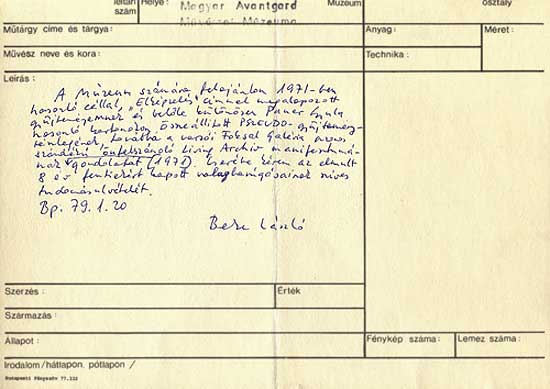 leltári szám
Helye :
Magyar Avantgard
Művészet Múzeuma
Múzeum
osztály
Műtárgy címe és tárgya :
Anyag :
Méret :
Művész neve és kora :
Technika :
Leírás :
A Múzeum számára felajánlom 1971-ben
hasonló céllal, „Elképzelés" címmel megalapozott
gyűjteményemet és belőle különösen Pauer Gyula
hasonló kartonokon összeállított PSZEUDO gyűjtemény-
részlegének, továbbá a varsói Foksal Galéria
szándékú önfelszámoló Living Archiv manifesztumá-
nak gondolatát (1971). Cserébe kérem az elmúlt
8 év fentiekért kapott valagbarúgásainak szíves
tudomásulvételét.
Bp. 79.1.20
Beke László
Szerzés :
Érték
Származás :
Állapot :
Fénykép száma :
Lemez száma :
Irodalom /hátlapon. pótlapon /
Budapesti Fényszöv 77.222